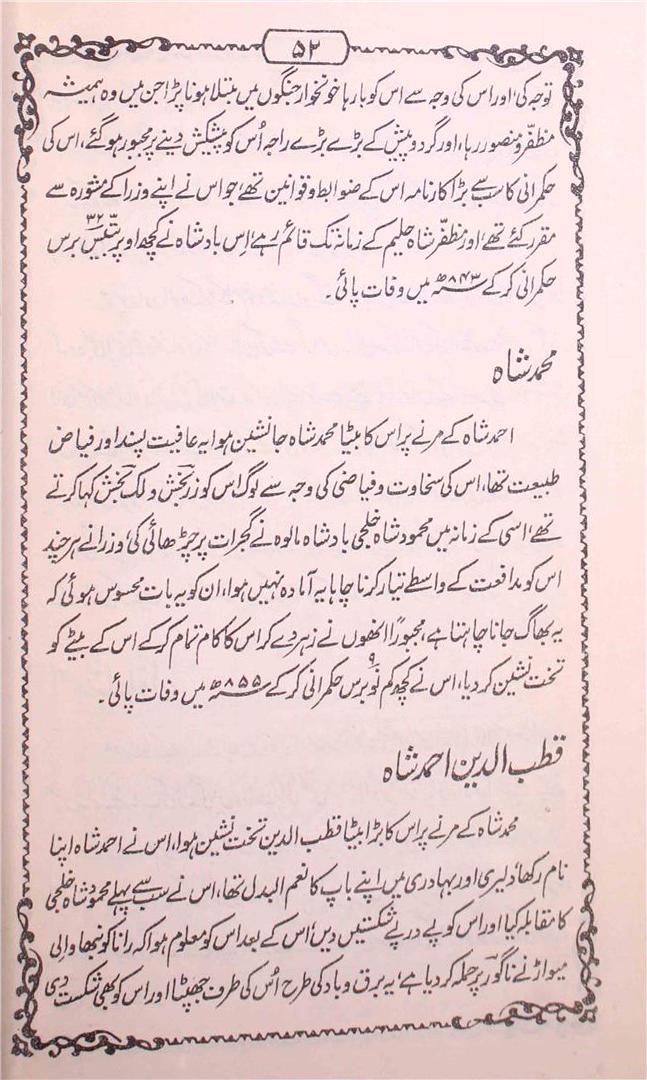 ۵۲
توجہ کی، اور اس کی وجہ سے اس کو بارہا خونخوار جنگوں میں مبتلا ہونا پڑا جن میں وہ ہمیشہ
مظفر و منصور رہا، اور گرد و پیش کے بڑے بڑے راجہ اُس کو پیشکش دینے پر مجبور ہو گئے، اس کی
حکمرانی کا سب سے بڑا کارنامہ اس کے ضوابط و قوانین تھے، جو اس نے اپنے وزرا کے مشورہ سے
مقرر کئے تھے، اور مظفر شاہ حلیم کے زمانہ تک قائم رہے، اِس بادشاہ نے کچھ اوپر بتیس ۳۲ برس
حکمرانی کر کے ۸۴۳ھ میں وفات پائی۔
محمد شاہ
احمد شاہ کے مرنے پر اس کا بیٹا محمد شاہ جانشین ہوا یہ عافیت پسند اور فیاض
طبیعت تھا، اس کی سخاوت و فیاضی کی وجہ سے لوگ اس کو زربخش و لک بخش کہا کرتے
تھے، اسی کے زمانہ میں محمود شاہ خلجی بادشاہ مالوہ نے گجرات پر چڑھائی کی، وزرا نے ہر چند
اس کو مدافعت کے واسطے تیار کرنا چاہا یہ آمادہ نہیں ہوا، ان کو یہ بات محسوس ہوئی کہ
یہ بھاگ جانا چاہتا ہے، مجبوراً انھوں نے زہر دے کر اس کا کام تمام کر کے اس کے بیٹے کو
تخت نشین کر دیا، اس نے کچھ کم نو ۹ برس حکمرانی کر کے ۸۵۵ھ میں وفات پائی۔
قطب الدین احمد شاہ
محمد شاہ کے مرنے پر اس کا بڑا بیٹا قطب الدین تخت نشین ہوا، اس نے احمد شاہ اپنا
نام رکھا، دلیری اور بہادری میں اپنے باپ کا نعم البدل تھا، اس نے سب سے پہلے محمود شاہ خلجی
کا مقابلہ کیا اور اس کو پے درپے شکستیں دیں، اس کے بعد اس کو معلوم ہوا کہ رانا کونبھا والی
میواڑ نے ناگور پر حملہ کر دیا ہے، یہ برق و باد کی طرح اُس کی طرف جھپٹا اور اس کو بھی شکست دی